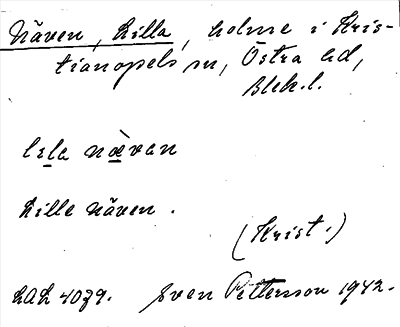 Näven, Lilla, holme i Kris-
tianopels sn, Östra hd,
Blek.l.
lɩla nævan
Lille Näven.
(Krist.)
LAL 4039. Sven Petterson 1942.